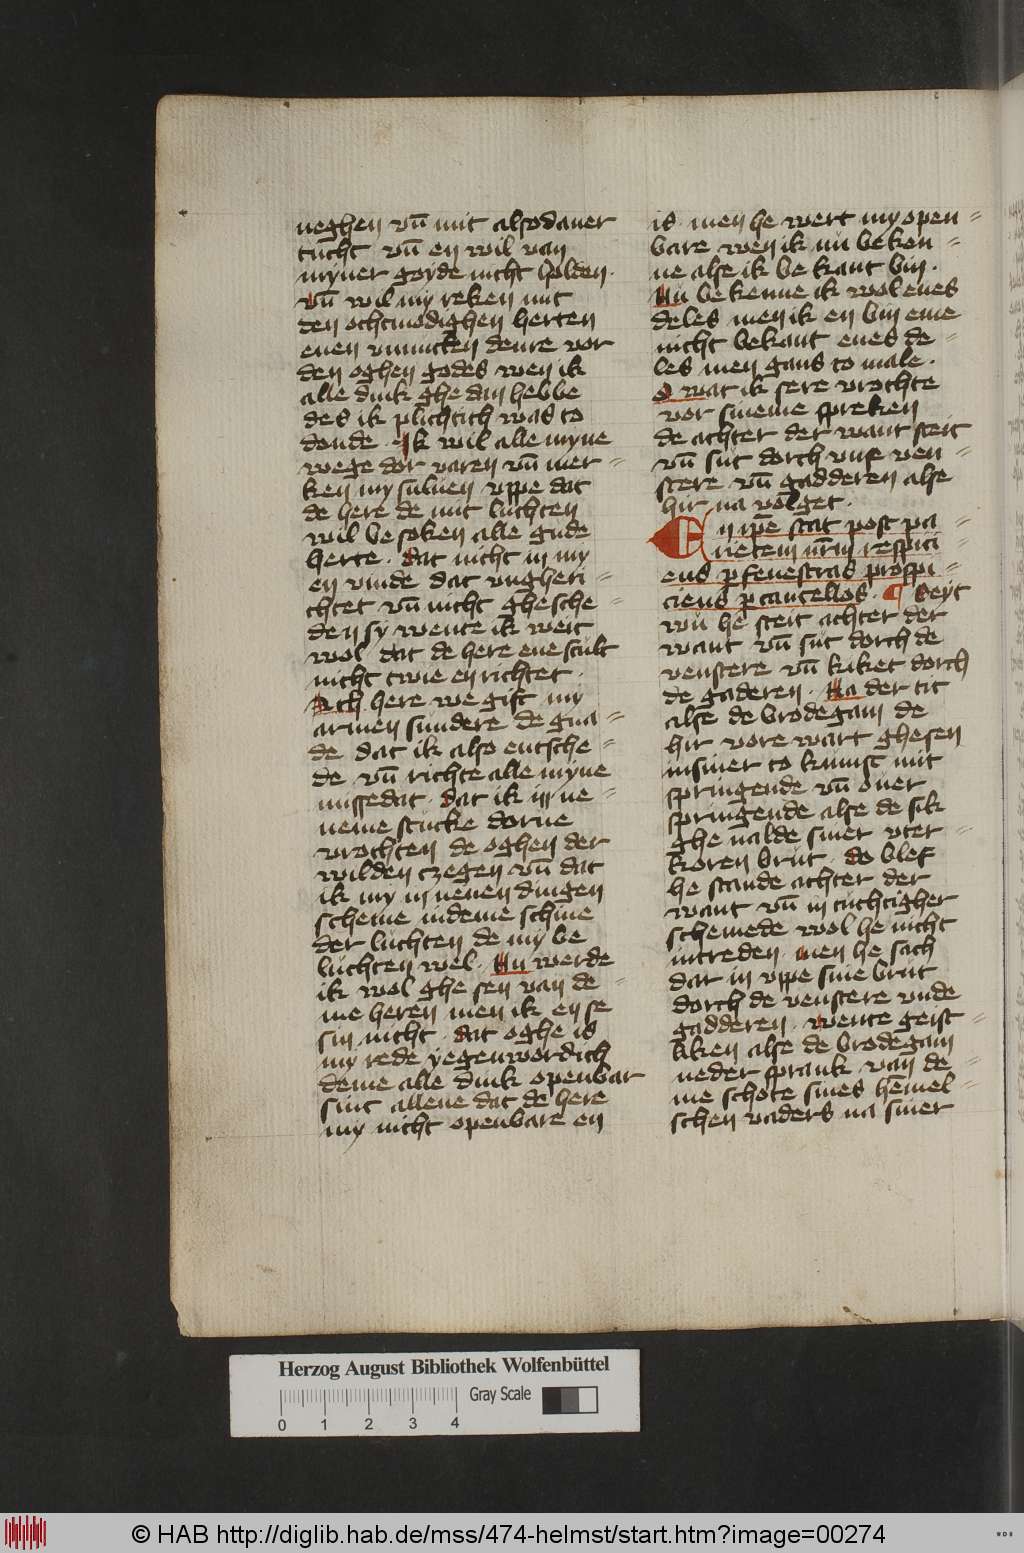 neghen vn̄ mit alsodaner
tucht vn̄ en wil van
myner goyde nicht holden.
vn̄ wil my reken mit
den othmodighen herten
enen vmmicken deme vor
den oghen godes wen ik
alle dink ghe dan hebbe
des ik plichtich was to
donde. Ik wil alle myne
wege dor varen vn̄ mer=
ken my suluen vppe dat
de here de mit luchten
wil besoken alle gude
herte. dat nicht in my
en vinde dat vngheri=
chtet vn̄ nicht ghesche=
den sy wente ik weit
wol dat de here ene scult
nicht twie en richtet.
Ach here we gift my
armen sundere de gna=
de dat ik also entsche=
de vn̄ richte alle myne
missedat. dat ik in ne=
neme stucke dorue
vrochten de oghen der
wilden czegen vn̄ dat
ik my in nenen dingen
scheme indeme schine
der luchten de my be
luchten wel. Nu werde
ik wol ghe sen van de=
me heren men ik en se
sin nicht. dat oghe is
my rede yegenwordich
deme alle dink openbar
sint allene dat de here
my nicht openbare en
is men he wert my open=
bare wen ik nu beken=
ne alse ik be kant bin.
Nu be kenne ik wol enes
deles men ik en bin eme
nicht bekant enes de=
les men gans to male.
O wat ik sere vrochte
vor sineme spreken
de achter der want steit
vn̄ sut dorch vnse ven=
stere vn̄ gadderen alse
hir na volget.
En ip̄e stat post pa=
rietem nr̄m respici=
ens p fenestras prospi=
ciens p cancellos. ¶ Seyt
wu he steit achter der
want vn̄ sut dorch de
venstere vn̄ kiket dorch
de gaderen. Na der tit
alse de brodegam de
hir vore wart ghesen
insiner to kumst mit
springende vn̄ ouer
springende alse de sik
ghe nalde siner vter=
koren brut. do blef
he stande achter der
want vn̄ in tuchtigher
schemede wol he nicht
intreden. men he sach
dar in vppe sine brut
dorch de venstere vnde
gadderen. wente geist=
liken alse de brodegam
neder sprank van de=
me schote sines hemel=
schen vaders na siner
Herzog August Bibliothek Wolfenbüttel
Gray Scale
0 1 2 3 4
© HAB http://diglib.hab.de/mss/474-helmst/start.htm?image=00274